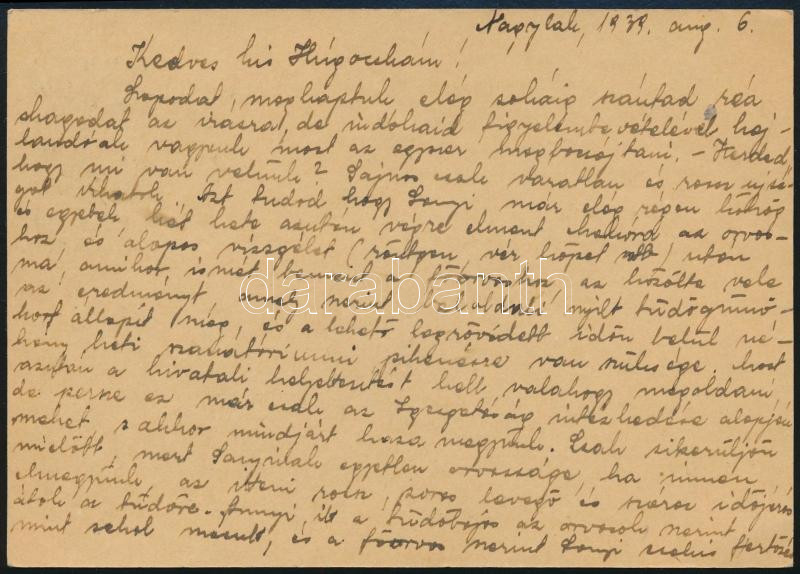 Nagylak, 1939. aug. 6.
Kedves kis Húgocskám!
Lapodat, megkaptuk elég sokáig szántad reá
magadat az írásra, de indokaid figyelembevételével haj-
landóak vagyunk most az egyszer megbocsájtani. - Kérded,
hogy mi van velünk? Sajnos csak váratlan és rossz ujsá-
got írhatok. Azt tudod hogy Sanyi már elég régen köhög
és egyebek, két hete azután végre elment az orvos-
hoz, és alapos vizsgálat (röntgen, vér, köpet stb) után
ma, amikor ismét bement a főorvoshoz az közölte vele
az eredményt, mely szerint nyílt tüdőgümő-
kort állapít meg, és a lehető legrövidebb időn belül né-
hány heti szanatóriumi pihenésre van szüksége. Most
azután a hivatali helyettesítést kell valahogy megoldani,
de persze ez már csak az Igazgatóság intézkedése alapján
mehet s akkor mindjárt haza megyünk. Csak sikerüljön
mielőbb, mert Sanyinak egyetlen orvossága, ha innen
elmegyünk, az itteni rossz, poros levegő és száraz időjárás
átok a tüdőre. Annyi itt a tüdőbajos az orvosok szerint
mint sehol másutt, és a főorvos szerint Sanyi is
darabanth